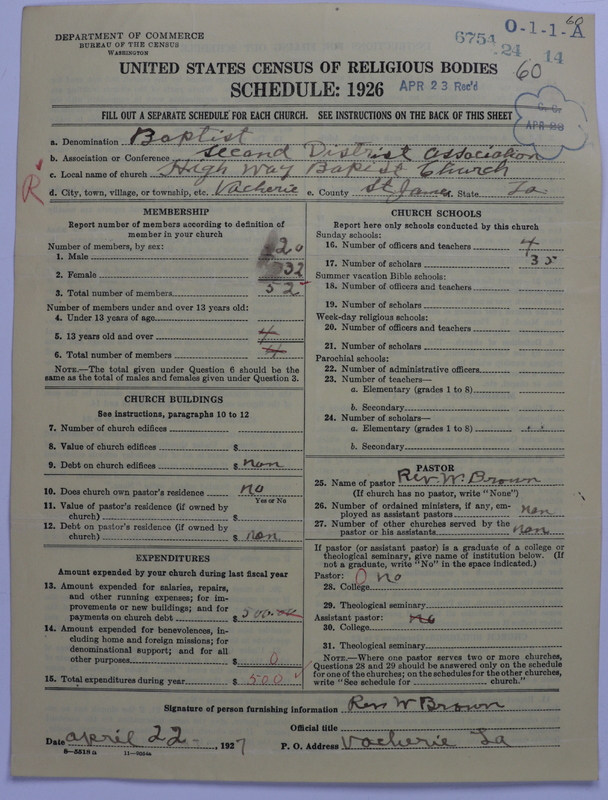 60
DEPARTMENT OF COMMERCE
BUREAU OF THE CENSUS
WASHINGTON
6754
O-1-1-A
24 14
UNITED STATES CENSUS OF RELIGIOUS BODIES
60
SCHEDULE: 1926
APR 23 Rec'd
FILL OUT A SEPARATE SCHEDULE FOR EACH CHURCH. SEE INSTRUCTIONS ON THE BACK OF THIS SHEET
APR 23
a. Denomination Baptist
b. Association or Conference Second District association
c. Local name of church High Way Baptist Church
R
d. City, town, village, or township, etc. Vacherie e. County St James f. State La
MEMBERSHIP
Report number of members according to definition of
member in your church
Number of members, by sex:
1. Male 20
2. Female 32
3. Total number of members 52
Number of members under and over 13 years old:
4. Under 13 years of age
5. 13 years old and over 4
6. Total number of members 4
NOTE.—The total given under Question 6 should be
same as the total of males and females given under Question 3.
CHURCH BUILDINGS
See instructions, paragraphs 10 to 12
7. Number of church edifices
8. Value of church edifices $
9. Debt on church edifices $ non
10. Does church own pastor's residence no
Yes or No
11. Value of pastor's residence (if owned by
church) $
12. Debt on pastor's residence (if owned by
church) $ non
EXPENDITURES
Amount expended by your church during last fiscal year
13. Amount expended for salaries, repairs,
and other running expenses; for im-
provements or new buildings; and for
payments on church debt $ 500.00
14. Amount expended for benevolences, in-
cluding home and foreign missions; for
denominational support; and for all
other purposes $ 0
15. Total expenditures during year $ 500
CHURCH SCHOOLS
Report here only schools conducted by this church
Sunday schools:
16. Number of officers and teachers 4
17. Number of scholars 35
Summer vacation Bible schools:
18. Number of officers and teachers
19. Number of scholars
Week-day religious schools:
20. Number of officers and teachers
21. Number of scholars
Parochial schools:
22. Number of administrative officers
23. Number of teachers—
a. Elementary (grades 1 to 8)
b. Secondary
24. Number of scholars—
a. Elementary (grades 1 to 8)
b. Secondary
PASTOR
25. Name of pastor Rev. W. Brown
(If church has no pastor, write "None")
26. Number of ordained ministers, if any, em-
ployed as assistant pastors non
27. Number of other churches served by the
pastor or his assistants non
If pastor (or assistant pastor) is a graduate of a college or
theological seminary, give name of institution below. (If
not a graduate, write "No" in the space indicated.)
Pastor: 0 no
28. College
29. Theological seminary
Assistant pastor: no
30. College
31. Theological seminary
NOTE.—Where one pastor serves two or more churches,
Questions 28 and 29 should be answered only on the schedule
for one of the churches; on the schedules for the other churches,
write "See schedule for church."
Signature of person furnishing information Rev W Brown
Official title
Date april 22, 1927 P. O. Address Vacherie La
8—5518 a 11—9554a